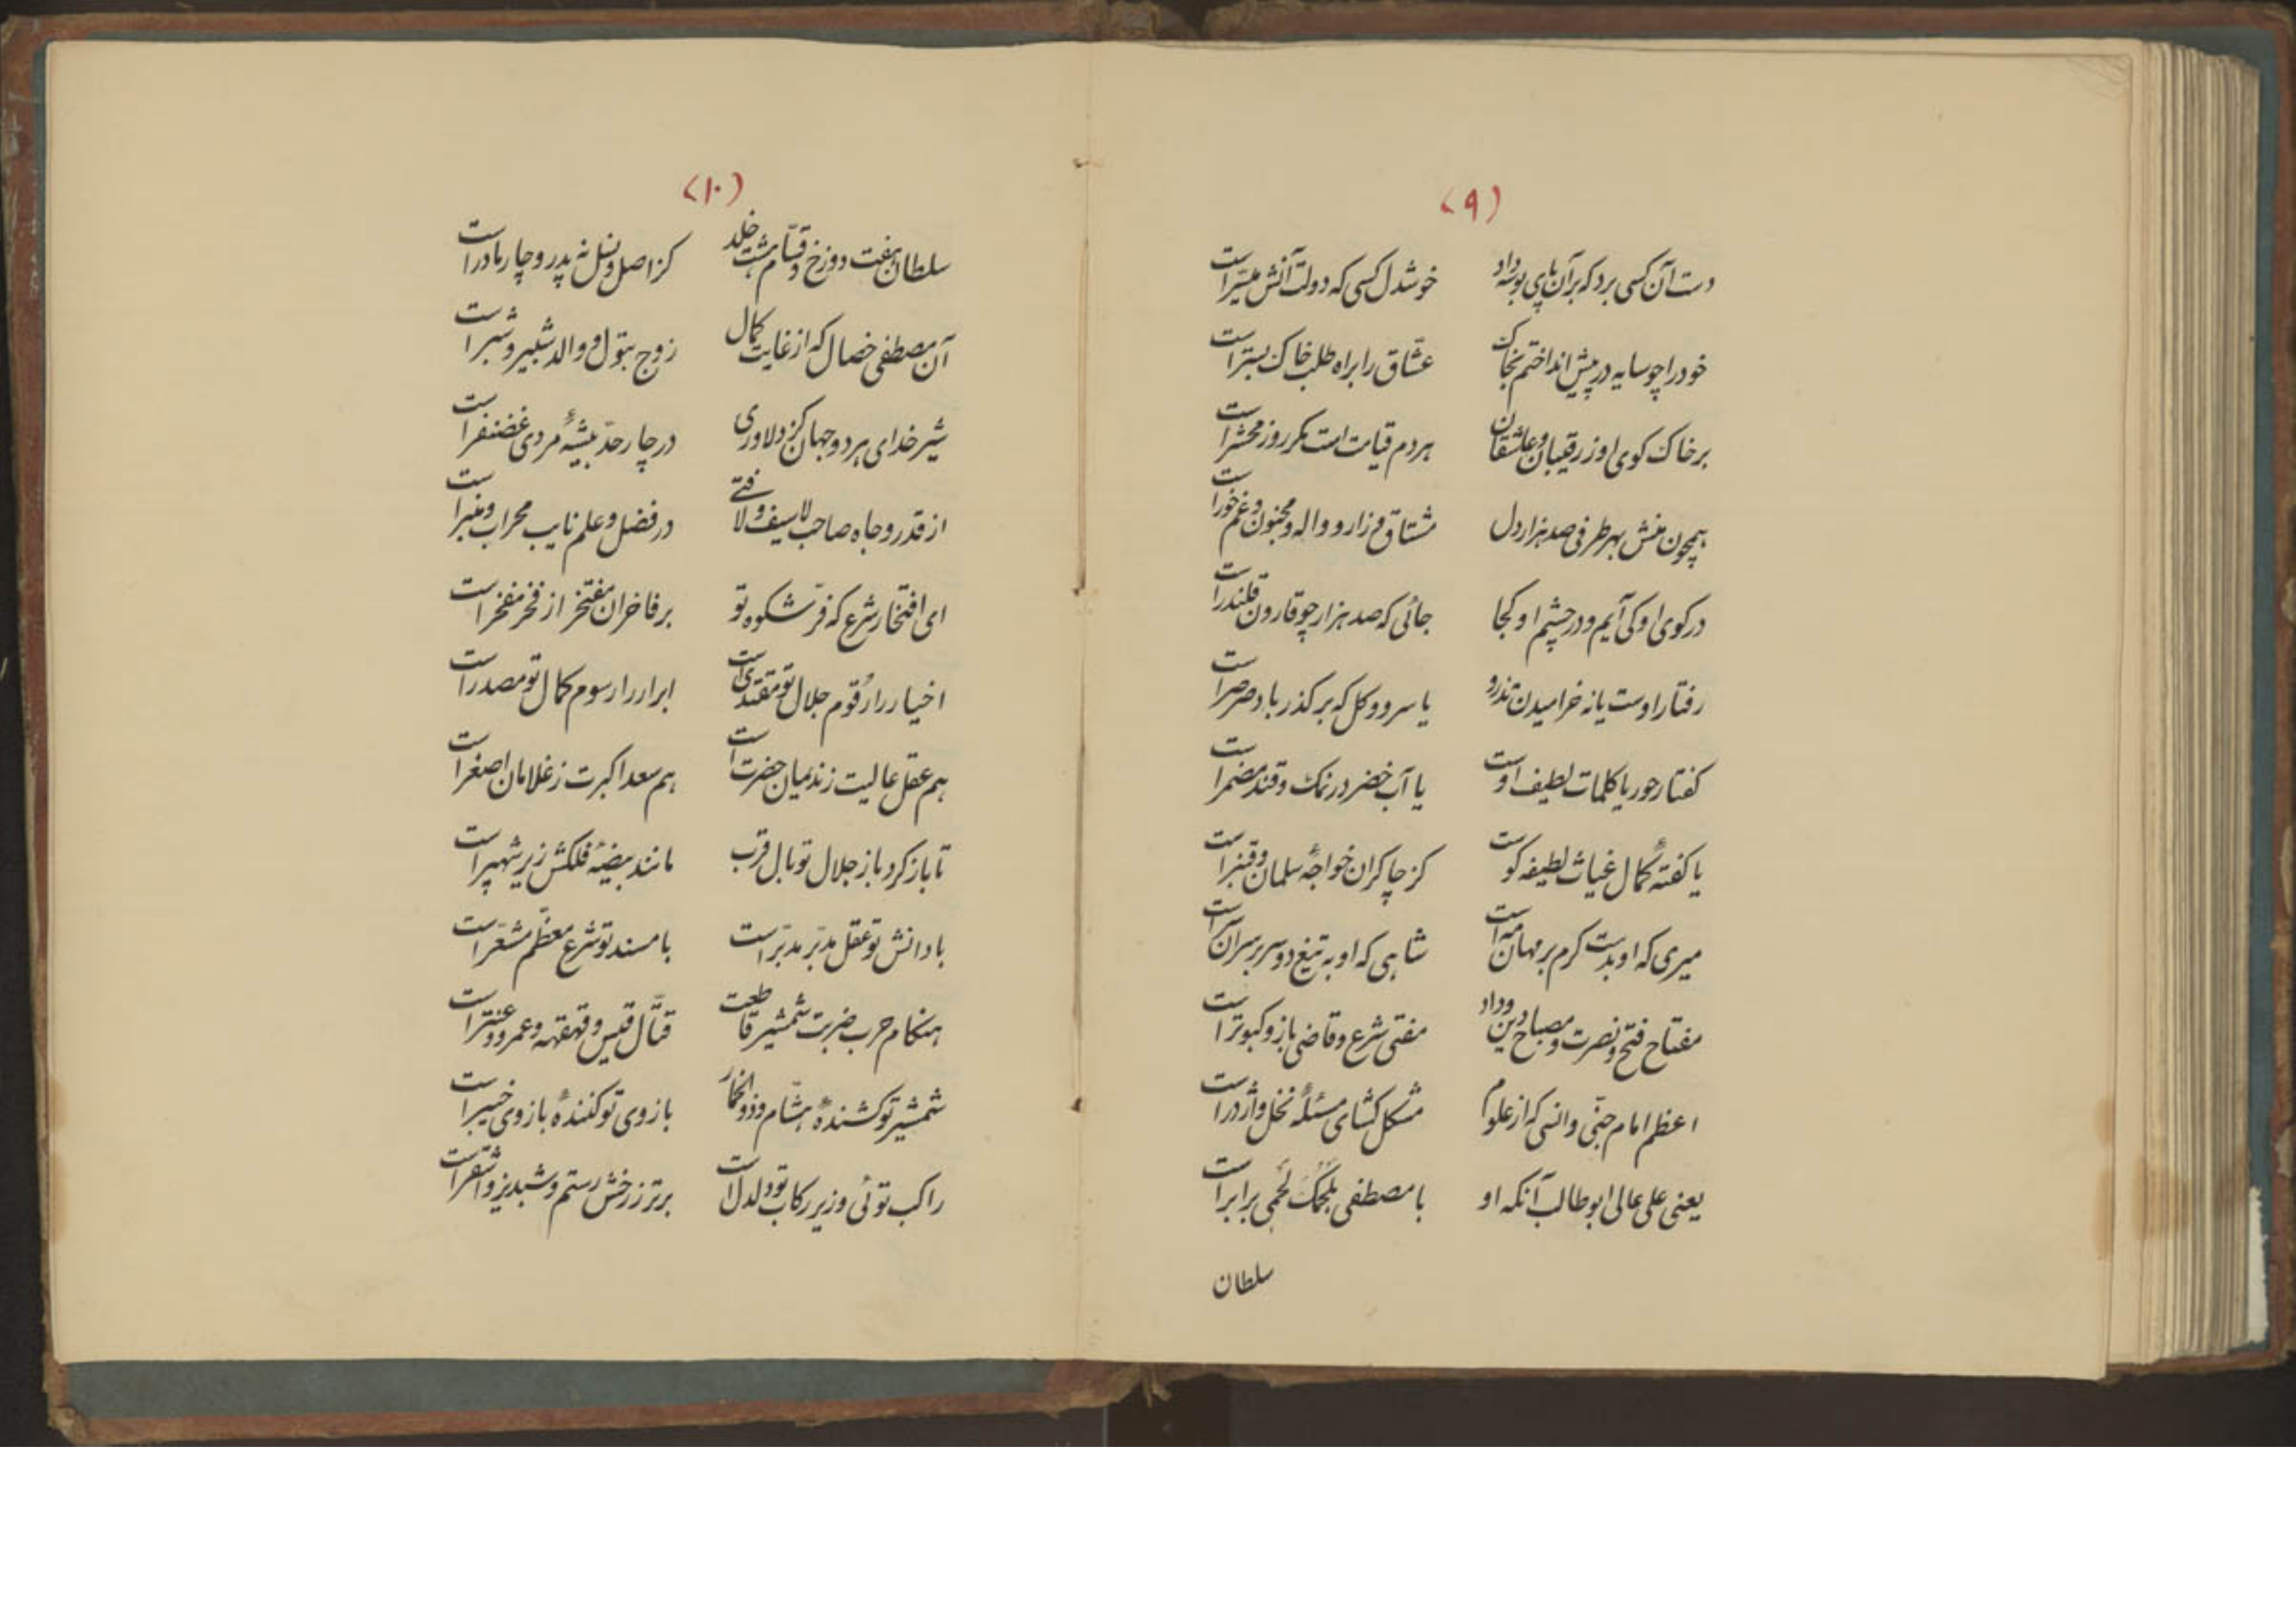 (۹)
دست آن کسی برد که بر آن پای بوسه داد    خوشدل کسی که دولت آنش میسّر است
خود را چو سایه در پیش انداختم بخاک    عشّاق را براه طلب خاک بستر است
بر خاک کوی او ز رقیبان و عاشقان    هر دم قیامت است مگر روز محشر است
همچون منش بهر طرفی صد هزار دل    مشتاق و زار و واله و مجنون و غم خور است
در کوی او کی آیم و در چشم او کجا    جائی که صد هزار چو قارون قلندر است
رفتار اوست یا نه خرامیدن تذرو    یا سرو و کل که بر کذر باد صرصر است
کفتار حور یا کلمات لطیف اوست    یا آب خضر در نمک و قند مضمر است
یا کفتهٔ کمال غیاث لطیفه کوست    کز چاکران خواجهٔ سلمان و قنبر است
میری که او بدست کرم بر مهان مه است    شاهی که او به تیغ دو سر بر سران سر است
مفتاح فتح و نصرت و مصباح دین و داد    مفتی شرع و قاضی باز و کبوتر است
اعظم امام جنّی و انسی که از علوم    مشکل کشای مسئلهٔ نخل و اژدر است
یعنی علی عالی ابوطالب آنکه او    با مصطفی بلحمک لحمی برابر است
سلطان
(۱۰)
سلطان هفت دوزخ و قسّام هشت خلد    کز اصل و نسل نه پدر و چار مادر است
آن مصطفی خصال که از غایت کمال    زوج بتول و والد شبیر و شبر است
شیر خدای هر دو جهان کز دلاوری    در چار حدّ بیشهٔ مردی غضنفر است
از قدر و جاه صاحب لاسیف و لا فتی    در فضل و علم نایب محراب و منبر است
ای افتخار شرع که فرّ شکوه تو    بر فاخران مفتخر از فخر مفخر است
اخیار را رقوم جلال تو مقتدی است    ابرار را رسوم کمال تو مصدر است
هم عقل عالیت ز ندیمان حضرت است    هم سعد اکبرت ز غلامان اصغر است
تا باز کرد باز جلال تو بال قرب    مانند بیضهٔ فلکش زیر شهپر است
با دانش تو عقل مدبّر مدبّر است    با مسند تو شرع معظّم مشعّر است
هنکام حرب ضربت شمشیر قاطعت    قتّال قیس و قهقهه و عمرو و عنتر است
شمشیر تو کشندهٔ هشّام و ذوالخمار    بازوی تو کنندهٔ بازوی خیبر است
راکب توئی و زیر رکاب تو دلدل است    برتر ز رخش رستم و شبدیز و اشقر است